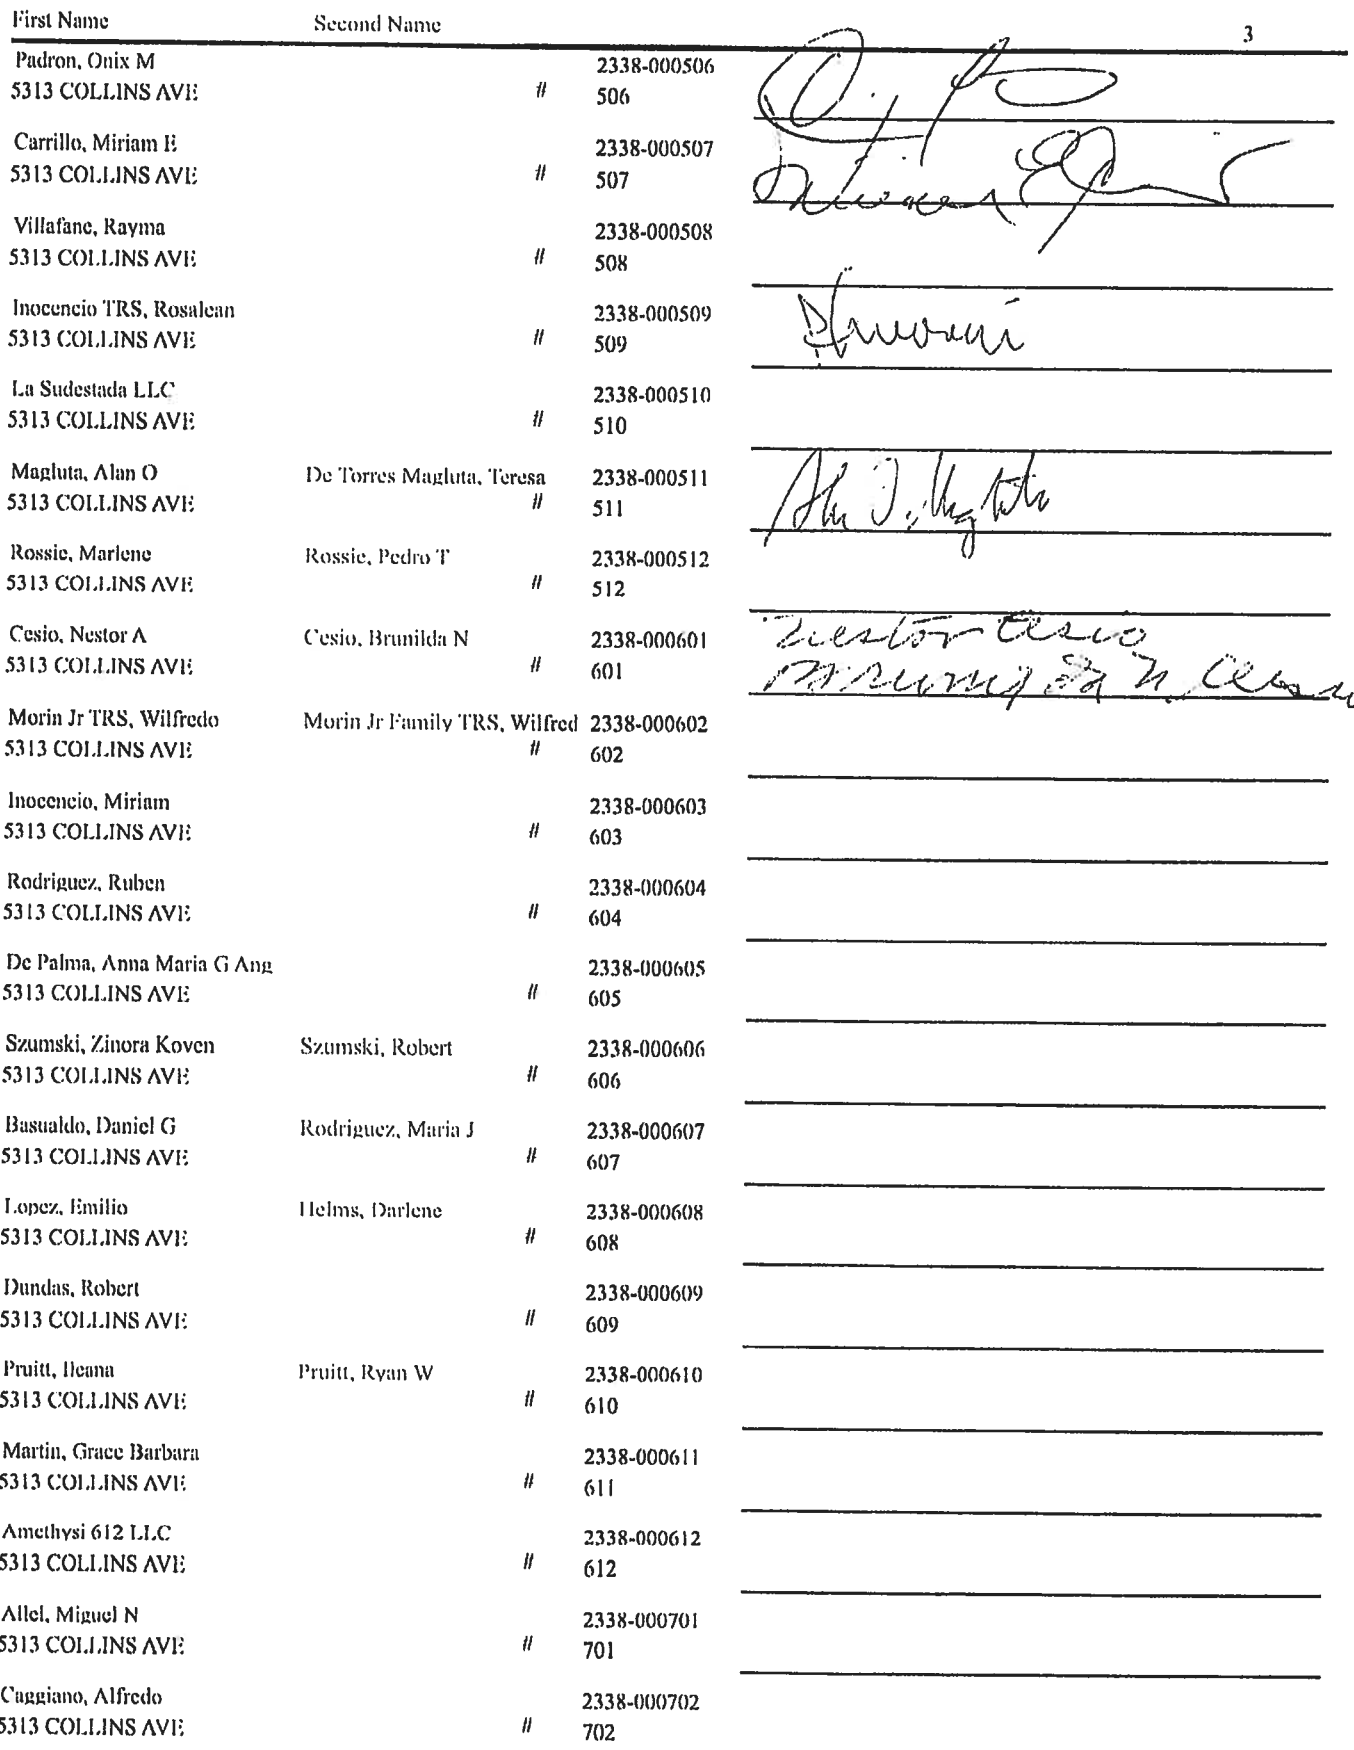 First Name Second Name 3
Padron, Onix M 2338-000506
5313 COLLINS AVE # 506
Carrillo, Miriam E 2338-000507
5313 COLLINS AVE # 507
Villafane, Rayma 2338-000508
5313 COLLINS AVE # 508
Inocencio TRS, Rosalean 2338-000509
5313 COLLINS AVE # 509
La Sudestada LLC 2338-000510
5313 COLLINS AVE # 510
Magluta, Alan O De Torres Magluta, Teresa 2338-000511
5313 COLLINS AVE # 511
Rossie, Marlene Rossie, Pedro T 2338-000512
5313 COLLINS AVE # 512
Cesio, Nestor A Cesio, Brunilda N 2338-000601 Nestor Cesio
5313 COLLINS AVE # 601
Morin Jr TRS, Wilfredo Morin Jr Family TRS, Wilfred 2338-000602
5313 COLLINS AVE # 602
Inocencio, Miriam 2338-000603
5313 COLLINS AVE # 603
Rodriguez, Ruben 2338-000604
5313 COLLINS AVE # 604
De Palma, Anna Maria G Ang 2338-000605
5313 COLLINS AVE # 605
Szumski, Zinora Koven Szumski, Robert 2338-000606
5313 COLLINS AVE # 606
Basualdo, Daniel G Rodriguez, Maria J 2338-000607
5313 COLLINS AVE # 607
Lopez, Emilio Helms, Darlene 2338-000608
5313 COLLINS AVE # 608
Dundas, Robert 2338-000609
5313 COLLINS AVE # 609
Pruitt, Ileana Pruitt, Ryan W 2338-000610
5313 COLLINS AVE # 610
Martin, Grace Barbara 2338-000611
5313 COLLINS AVE # 611
Amethysi 612 LLC 2338-000612
5313 COLLINS AVE # 612
Allel, Miguel N 2338-000701
5313 COLLINS AVE # 701
Caggiano, Alfredo 2338-000702
5313 COLLINS AVE # 702